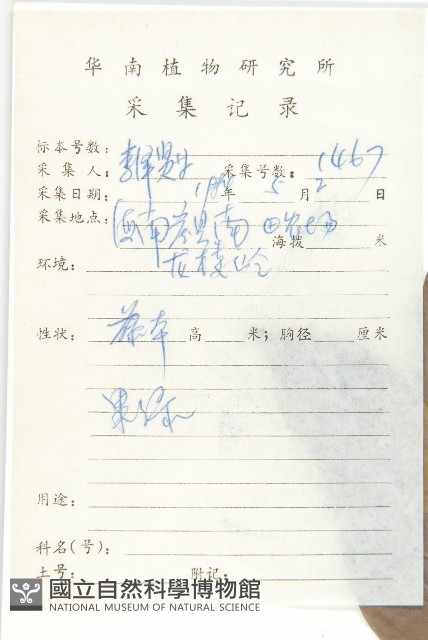 华南植物研究所
采集记录
标本号数:
采集人: 采集号数: 1467
采集日期: 年 5 月 2 日
采集地点: 海南 南田农场
海拨 米
环境:
性状: 藤本 高 米; 胸径 厘米
果绿
用途:
科名(号):
土号: 附记:
國立自然科學博物館
NATIONAL MUSEUM OF NATURAL SCIENCE